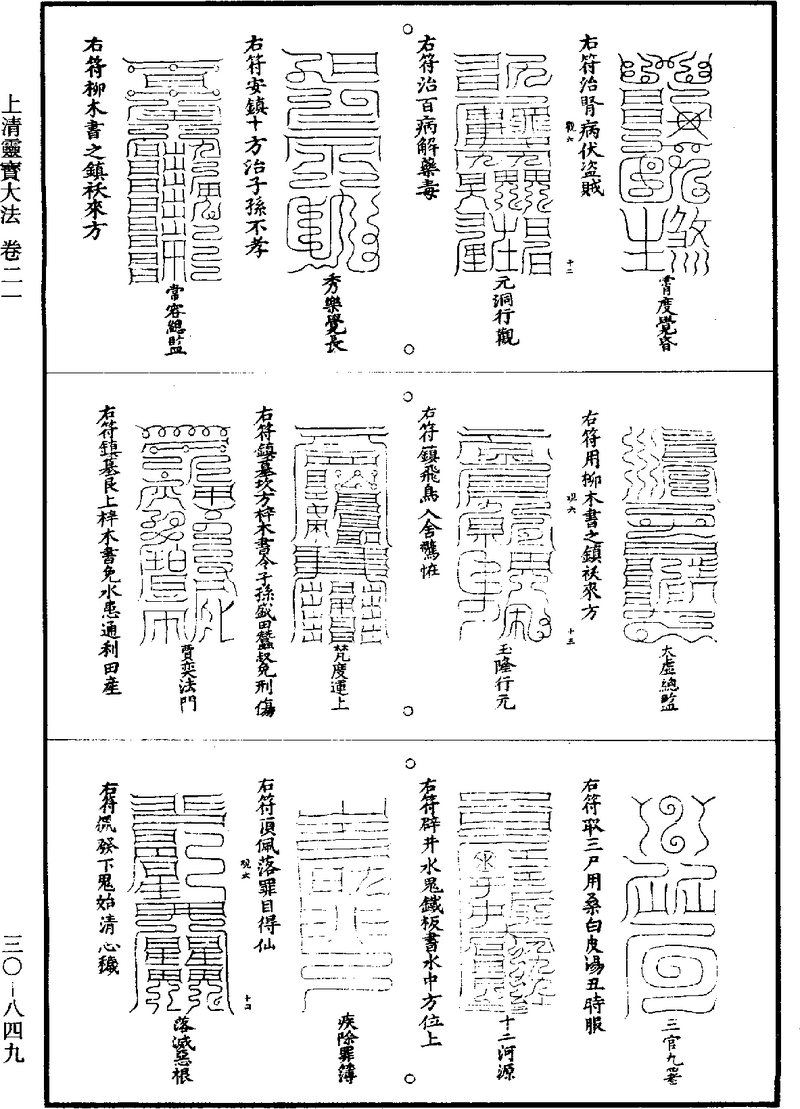 上清靈寶大法 卷二一
三〇—八四九
霄度覺睿
右符治腎病伏盜賊
觀六
十二
元洞行觀
右符治百病解藥毒
秀樂覺長
右符安鎮十方治子孫不孝
常容總監
右符柳木書之鎮祅來方
太虛總監
右符用柳木書之鎮祅來方
觀六
十三
玉隆行元
右符鎮飛鳥入舍驚怪
梵度運上
右符鎮墓坎方梓木書令子孫盛田蠶免刑傷
賈奕法門
右符鎮墓艮上梓木書免水患通利田產
三官九署
右符取三尸用桑白皮湯丑時服
十二河源
右符辟井水鬼鐵板書水中方位上
疾除罪簿
右符頂佩落罪目得仙
觀六
十四
落滅惡根
右符下鬼始清心穢